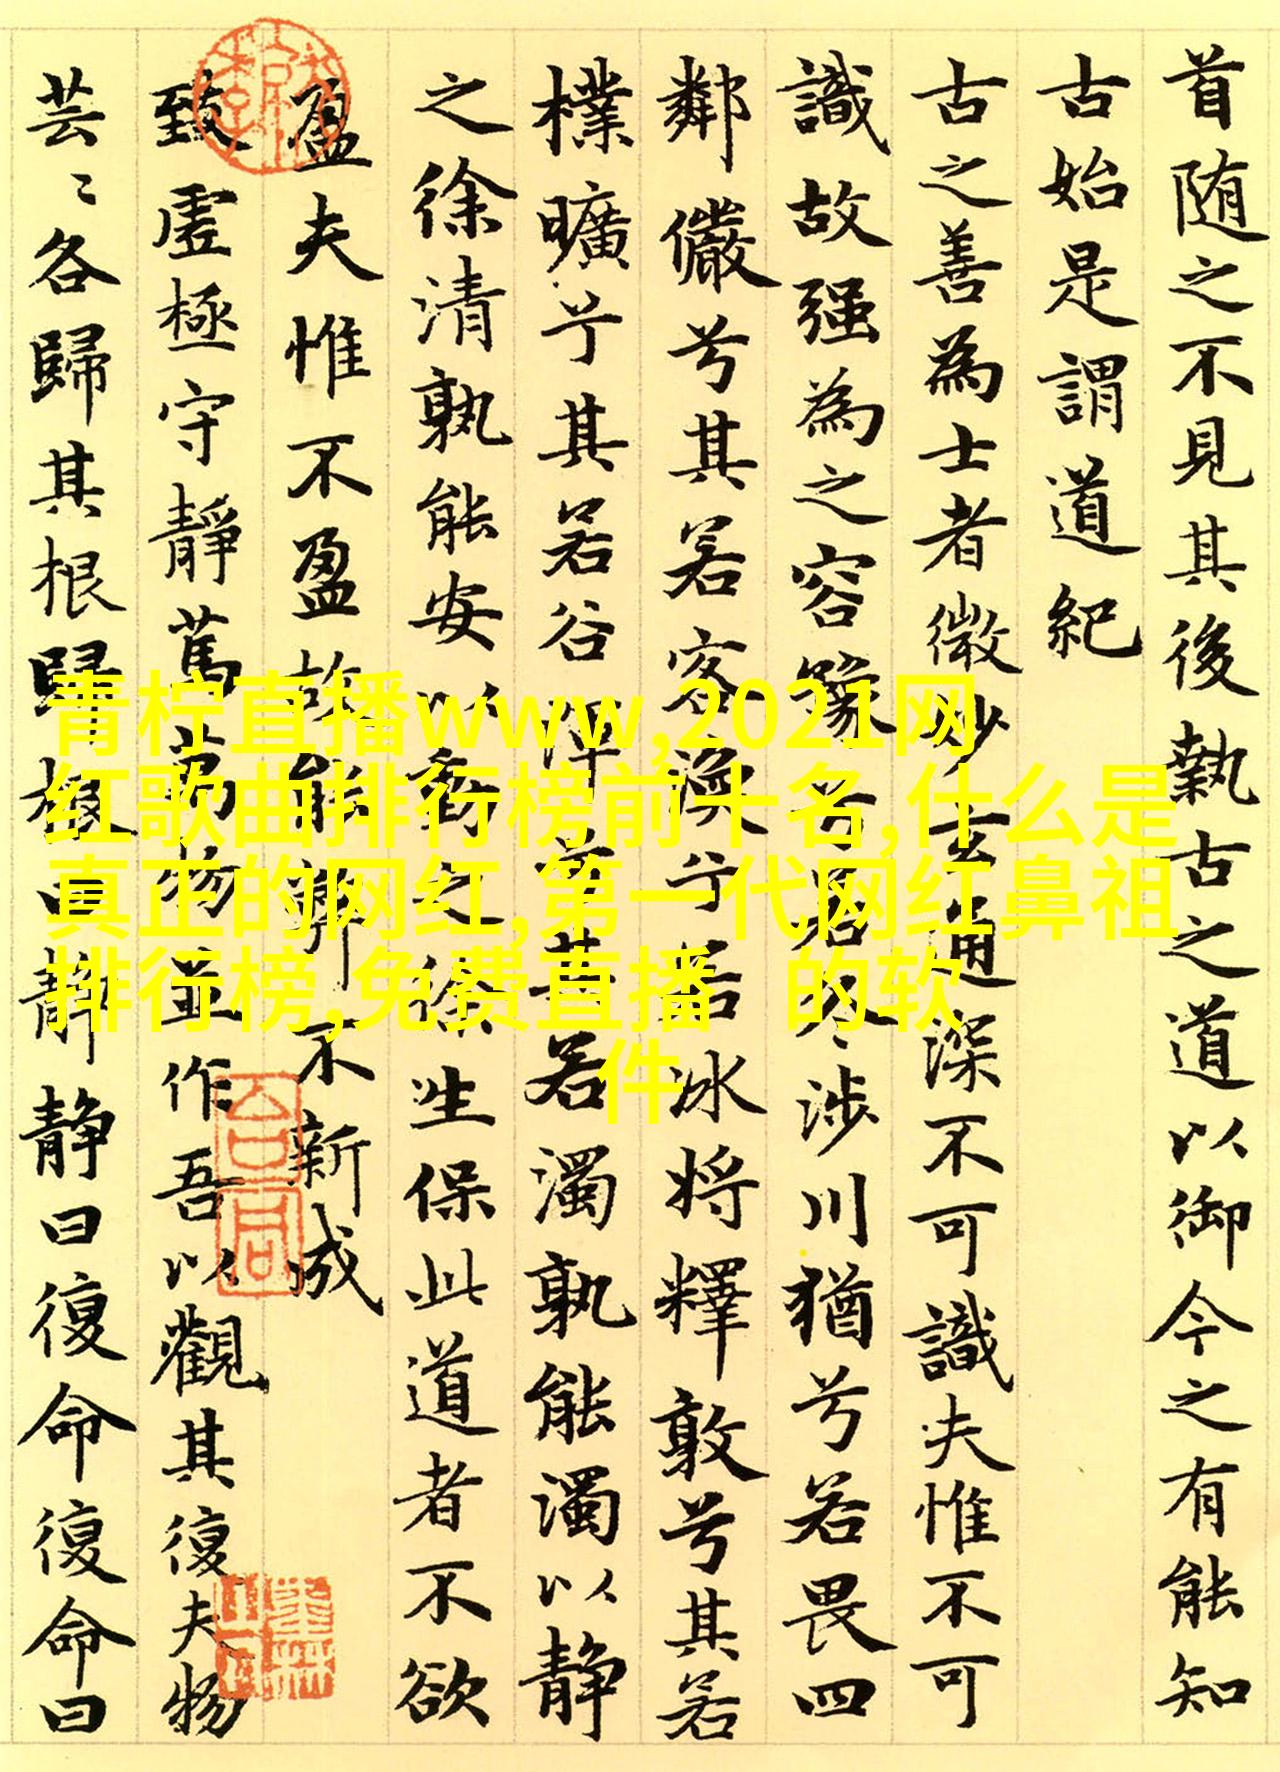 首随之不見其後執古之道以御今之有能知
古始是謂道紀
古之善為士者微妙玄通深不可識夫惟不可
識故强為之容豫兮若冬涉川猶兮若畏四
鄰儼兮其若客渙兮若冰將釋敦兮其若
樸曠兮其若谷渾兮其若濁孰能濁以静
之徐清孰能安以之徐生保此道者不欲
盈夫惟不盈故能弊不新成
致虛極守靜篤萬物並作吾以觀其復夫物
芸〻各歸其根歸根曰静静曰復命復命曰
青柠直播www,2021网
红歌曲排行榜前十名,什么是
真正的网红,第一代网红鼻祖
排行榜,免费直播 的软
件